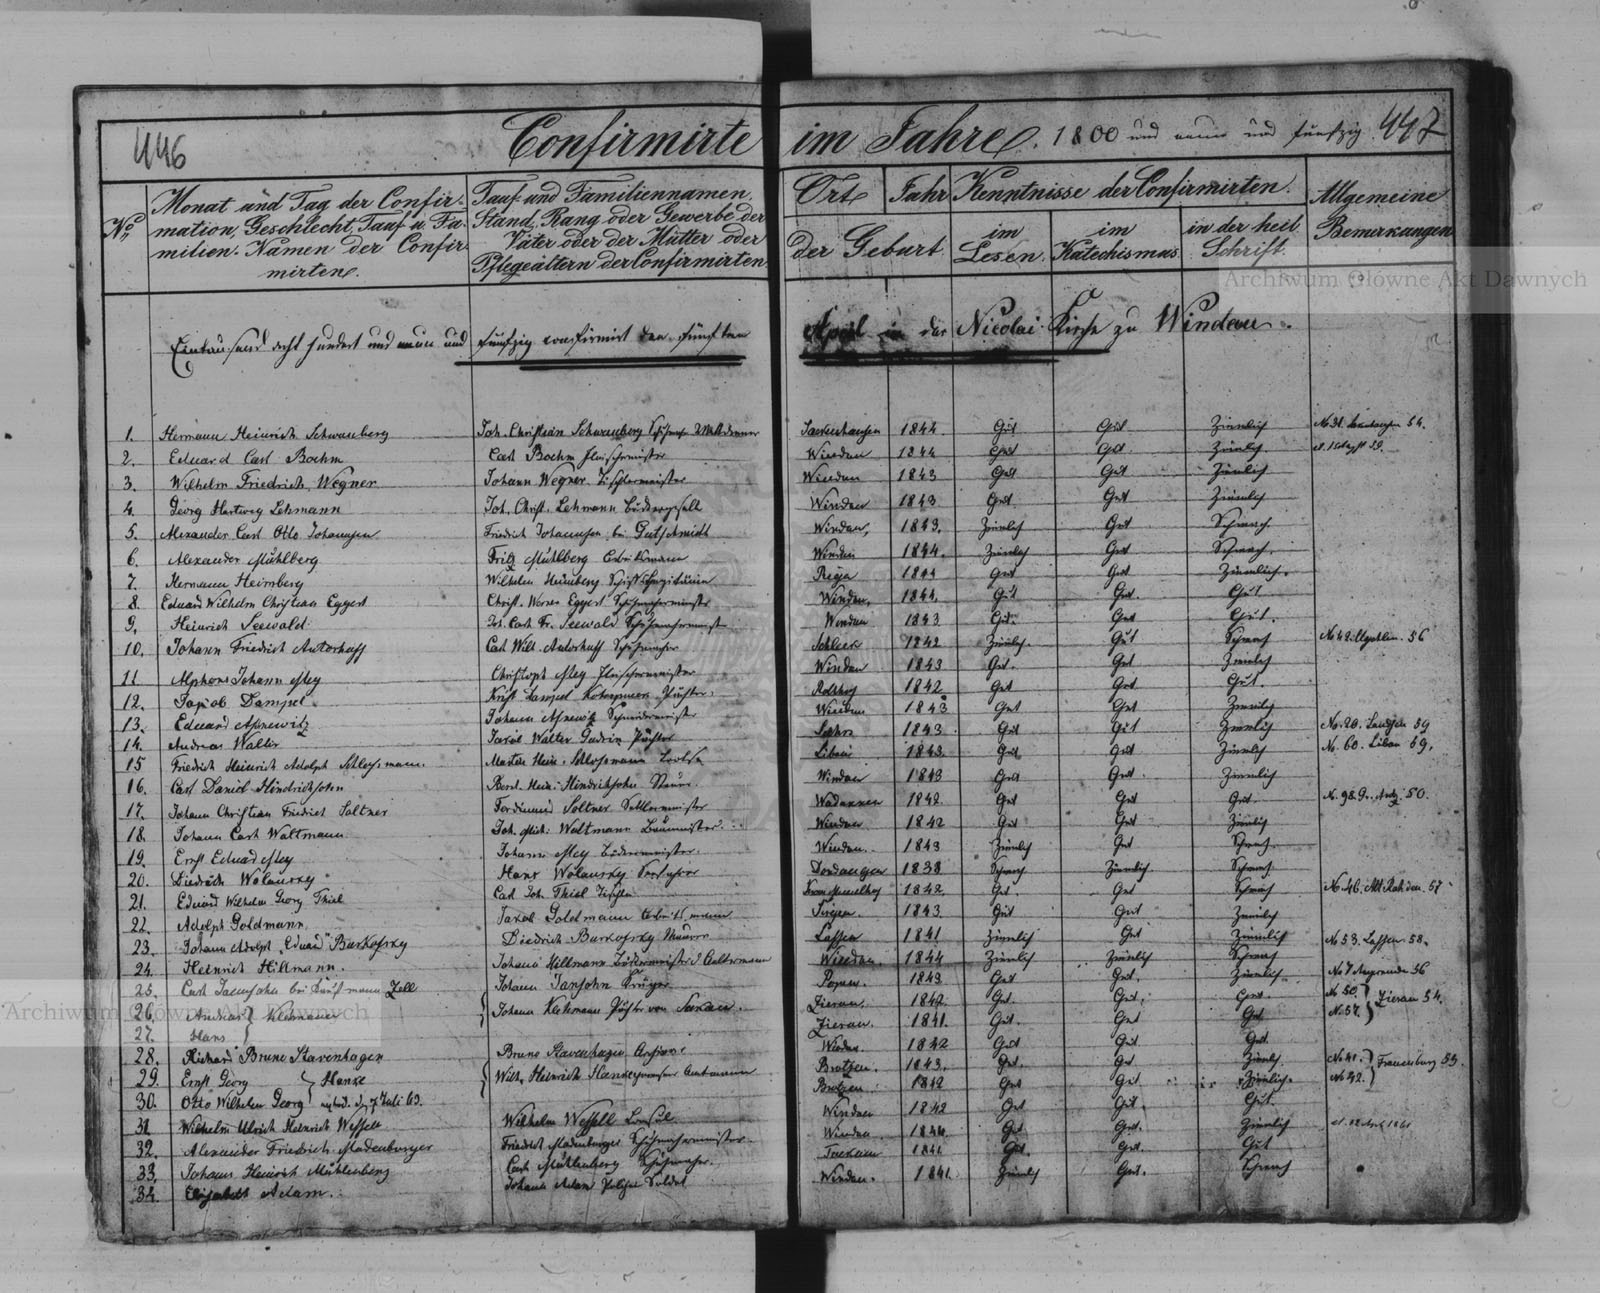 446
Confirmirte im Jahre 1800 und neun und fünfzig 447
No
Monat und Tag der Confir-
mation, Geschlecht, Tauf u. Fa-
milien-Namen der Confir-
mirten.
Tauf- und Familiennamen,
Stand, Rang oder Gewerbe der
Väter oder der Mütter oder
Pflegeältern der Confirmirten
Ort Jahr
der Geburt
Kenntnisse der Confirmirten.
im
Lesen.
im
Katechismus
in der heil.
Schrift.
Allgemeine
Bemerkungen
Eintausend acht hundert und neun und fünfzig confirmirt den fünften April in der Nicolai Kirche zu Windau.
1. Hermann Heinrich Schwanberg Joh. Christian Schwanberg 1844. Gut Gut Ziemlich 54.
2. Eduard Carl Boehm Carl Boehm Fleischermeister Windau 1844 Gut Gut. Ziemlich
3. Wilhelm Friedrich Wegner Johann Wegner Tischlermeister Windau 1843 Gut Gut Ziemlich
4. Georg Hartweg Lehmann Joh. Christ. Lehmann Windau 1843 Gut Gut Ziemlich
5. Alexander Carl Otto Johannsen Friedrich Johannsen bei Gutschmidt Windau, 1843. Ziemlich Gut Schwach.
6. Alexander Mühlberg Fritz Mühlberg Arbeitsmann Windau 1844. Ziemlich Gut Schwach.
7. Hermann Heimberg Wilhelm Heimberg Schiffs Capitain Riga 1844 Gut Gut Ziemlich.
8. Eduard Wilhelm Christian Eggert Christ. Werner Eggert Schuhmachermeister Windau, 1844. Gut Gut. Gut
9. Heinrich Seewald Joh. Carl Fr. Seewald Schuhmachermeister Windau 1843 Gut. Gut Gut.
10. Johann Friedrich Carl Wilh. Schuhmacher Schleck 1842 Ziemlich. Gut Schwach 56
11 Alphons Johann Mey Christoph Mey Fleischermeister Windau 1843 Gut. Gut Ziemlich
12. Jacob Dampel 1842 Gut Gut Gut.
13. Eduard Johann Schneidermeister Windau 1843 Gut Gut Ziemlich
14. Andreas Walter Jacob Walter 1843 Gut Gut Ziemlich No. 20. Landsen 59
15 Friedrich Heinrich Adolph Schlossmann. Martin Hein. Schlossmann Lootse Libau 1843. Gut Gut Ziemlich No. 60. Libau 59.
16. Carl Daniel Hindrichsohn Hein. Hindrichsohn Windau 1843 Gut Gut. Ziemlich
17. Johann Christian Friedrich Soltner Ferdinand Soltner Sattlermeister 1842. Gut Gut Gut. 50.
18. Johann Carl Waltmann Joh. Mich. Waltmann Windau 1842 Gut Gut Ziemlich
19. Ernst Eduard Mey Johann Mey Windau. 1843 Ziemlich Gut Schwach.
20. Diedrich Wolansky Hans Wolansky Dondangen 1838 Schwach Ziemlich Schwach.
21. Eduard Wilhelm Georg Thiel Carl Joh. Thiel Tischler 1842. Gut Gut Schwach No 46. Alt Rahden. 57
22. Adolph Goldmann Jacob Goldmann Arbeitsmann 1843 Gut Gut Ziemlich
23. Johann Adolph "Eduard" Burkofsky Diedrich Burkofsky Maurer Lassen 1841 Ziemlich Gut Ziemlich No 53. Lassen. 58.
24. Heinrich Hillmann. Johann Hillmann Windau. 1844 Ziemlich Ziemlich Schwach
25. Carl Jansohn bei Kaufmann Zoll Johann Jansohn Krüger Popen. 1843 Gut Gut. Ziemlich. 36
26. Johann Pächter von Zierau. 1842 Gut. Gut. Gut No 50. Zierau 54.
27. Hans Zierau. 1841. Gut. Gut Gut No 57.
28. Richard Bruno Stavenhagen Bruno Stavenhagen Windau. 1842 Gut Gut Gut.
29. Ernst Georg Hanke Wilh. Heinrich Hanke Amtmann 1843. Gut. Gut Ziemlich No 41. Frauenburg 55.
30. Otto Wilhelm Georg 7 Juli 63. 1842 Gut Gut Ziemlich. No 42.
31 Wilhelm Ulrich Heinrich Wessell Wilhelm Wessell Consul Windau 1842 Gut Gut. Gut.
32. Alexander Friedrich Madenburger Friedrich Madenburger Schuhmachermeister Windau 1844 Gut Gut. Ziemlich
33. Johann Heinrich Mühlenberg Carl Mühlenberg Schuhmacher. 1841 Gut. Gut. Gut
34. Elisabeth Adam. Johann Adam Polizei Soldat Windau. 1841. Ziemlich Gut. Schwach
Archiwum Główne Akt Dawnych
Archiwum Główne Akt Dawnych